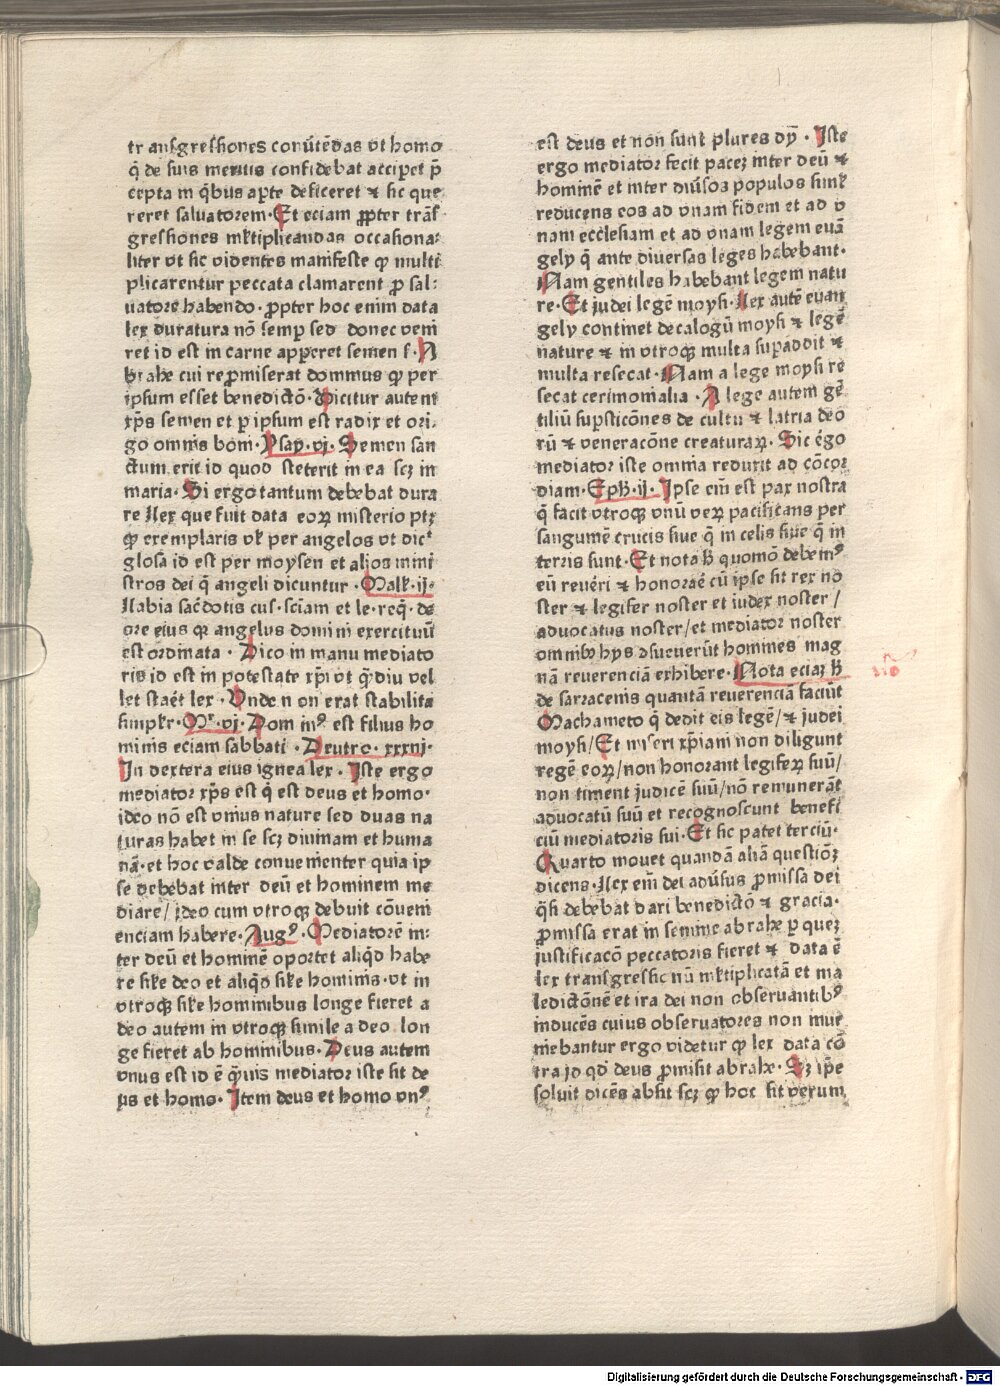 tranſgreſſiones conūtēdas vt homo
q̄ de ſuis meritis confidebat acciperet p̄
cepta in q̄bus apte deficeret ⁊ ſic que
reret ſaluatorem · Et eciam ꝓpter trāſ
greſſiones mltiplicandas occaſiona⸗
liter vt ſic videntes manifeſte ꝙ multi
plicarentur peccata clamarent ꝓ ſal⸗
uatore habendo · ꝓpter hoc enim data
lex duratura nō ſemꝑ ſed donec veni
ret id eſt in carne apperet ſemen ſ· A
brahe cui reꝓmiſerat dominus ꝙ per
ipſum eſſet benedictō · Dicitur autem
xp̄s ſemen et ꝑ ipſum eſt radix et ori⸗
go omnis boni · Yſay · vj · Semen ſan
ctum erit id quod ſteterit in ea ſcꝫ in
maria · Si ergo tantum debebat dura
re lex que fuit data eoꝝ miſterio ptꝫ
ꝙ exemplaris vl̄ per angelos vt dic̄
gloſa id eſt per moyſen et alios mini
ſtros dei q̄ angeli dicuntur · Malk · ij ·
Labia ſac̄dotis cuſ· ſcīam et le· req̄· de
ore eius qꝛ angelus domini exercituū
eſt ordinata · Dico in manu mediato
ris id eſt in poteſtate xp̄i vt q̄diu vel
let ſtaēt lex · Vnde non erat ſtabilita
ſimplr · Mr · vj · Dominꝰ eſt filius ho
minis eciam ſabbati · Deutro · xxxnj ·
In dextera eius ignea lex · Iſte ergo
mediator xp̄s eſt q̄ eſt deus et homo ·
ideo nō eſt vnius nature ſed duas na
turas habet in ſe ſcꝫ diuinam et huma
nā · et hoc valde conuenienter quia ip
ſe debebat inter deū et hominem me
diare / ideo cum vtroqꝫ debuit cōueni
enciam habere · Augꝰ · Mediatorē in⸗
ter deū et hominē oportet aliqd habe
re ſile deo et aliqd ſile hominis · vt in
vtroqꝫ ſile hominibus longe fieret a
deo autem in vtroqꝫ ſimile a deo lon
ge fieret ab hominibus · Deus autem
vnus eſt id ē q̄uis mediator iſte ſit de
us et homo · Item deus et homo vnꝰ
eſt deus et non ſunt plures dij · Iſte
ergo mediator fecit pacēꝫ inter deū ⁊
hominē et inter diūſos populos ſimſ
reducens eos ad vnam fidem et ad v
nam eccleſiam et ad vnam legem euā
gely q̄ ante diuerſas leges habebant ·
Nam gentiles habebant legem natu
re · Et judei legē moyſi · Lex autē euan
gely continet decalogū moyſi ⁊ legē
nature ⁊ in vtroqꝫ multa ſupaddit ⁊
multa reſecat · Nam a lege moyſi re
ſecat cerimonialia · A lege autem gē
tiliū ſupſticōnes de cultu ⁊ latria deo
rū ⁊ veneracōne creaturaꝝ · Sic ergo
mediator iſte omnia reduxit ad cōcor
diam · Eph · ij · Ipſe eni eſt pax noſtra
q̄ facit vtroqꝫ vnū veꝝ pacificans per
ſanguinē crucis ſiue q̄ in celis ſiue q̄ in
terris ſunt · Et nota h̄ quomō debemꝰ
eū reuēri ⁊ honoraē cū ipſe ſit rex no
ſter ⁊ legifer noſter et iudex noſter /
aduocatus noſter / et mediator noſter
omnibꝫ hys aſueuerūt homines mag
nā reuerenciā exhibere · Nota eciaꝫ h̄
de ſarracenis quantā reuerenciā faciūt
Machameto q̄ dedit eis legē / ⁊ judei
moyſi / Et miſeri xp̄iani non diligunt
regē eoꝝ / non honorant legiferꝝ ſuū /
non timent judicē ſuū / nō remunerāt
aduocatū ſuū et recognoſcunt benefi
ciū mediatoris ſui · Et ſic patet terciū ·
Quarto mouet quandā aliā queſtiōꝫ
dicens · Lex em̄ dei adūſus ꝓmiſſa dei
q̄ſi debebat dari benedictō ⁊ gracia ·
ꝓmiſſa erat in ſemine abrahe ꝑ queꝫ
juſtificacō peccatoris fieret ⁊ data ē
lex tranſgreſſic nū mltiplicatā et ma
ledictōnē et ira dei non obſeruantibꝰ
inducēs cuius obſeruatores non inue
niebantur ergo videtur ꝙ lex data cō
tra id qd̄ deus ꝓmiſit abrahe · Sꝫ ip̄e
ſoluit dicēs abſit ſcꝫ ꝙ hoc ſit verum